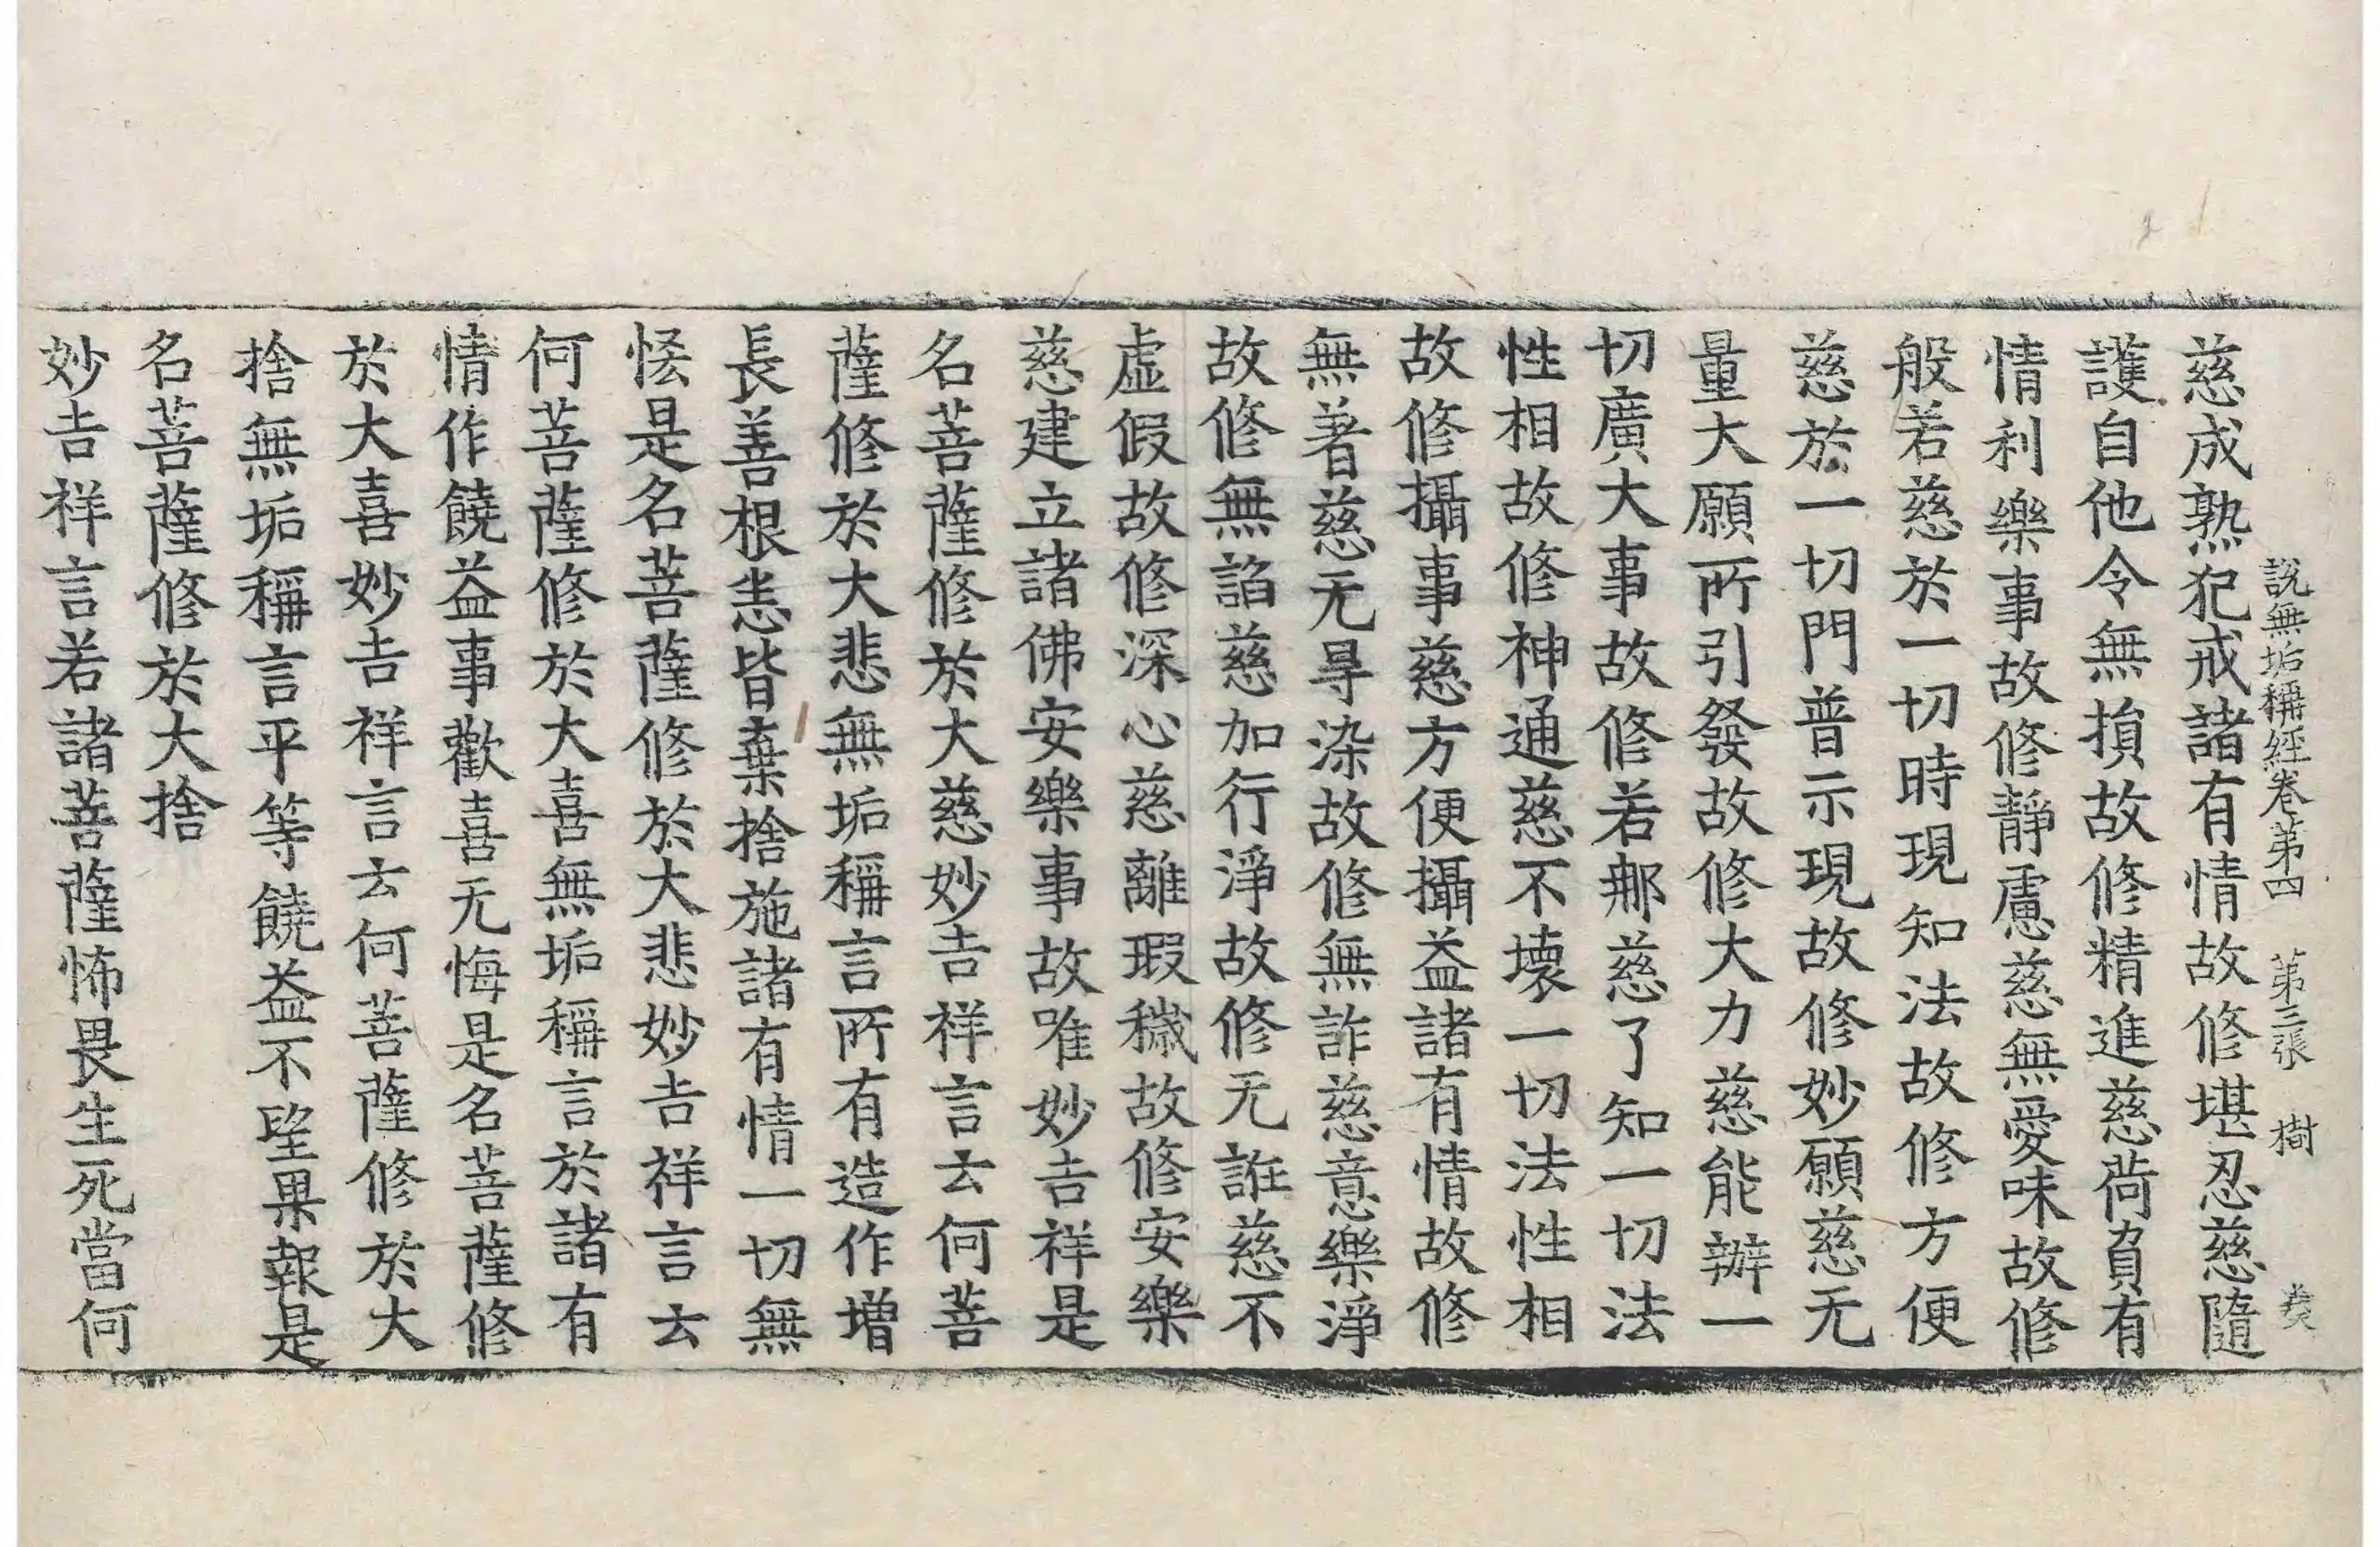 說無垢稱經卷第四 第三張 樹
慈成熟犯戒諸有情故修堪忍慈隨
護自他令無損故修精進慈荷負有
情利樂事故修靜慮慈無愛味故修
般若慈於一切時現知法故修方便
慈於一切門普示現故修妙願慈无
量大願所引發故修大力慈能辦一
切廣大事故修若那慈了知一切法
性相故修神通慈不壞一切法性相
故修攝事慈方便攝益諸有情故修
無著慈无㝵染故修無詐慈意樂淨
故修無諂慈加行淨故修无誑慈不
虛假故修深心慈離瑕穢故修安樂
慈建立諸佛安樂事故唯妙吉祥是
名菩薩修於大慈妙吉祥言云何菩
薩修於大悲無垢稱言所有造作增
長善根悉皆棄捨施諸有情一切無
恡是名菩薩修於大悲妙吉祥言云
何菩薩修於大喜無垢稱言於諸有
情作饒益事歡喜无悔是名菩薩修
於大喜妙吉祥言云何菩薩修於大
捨無垢稱言平等饒益不望果報是
名菩薩修於大捨
妙吉祥言若諸菩薩怖畏生死當何